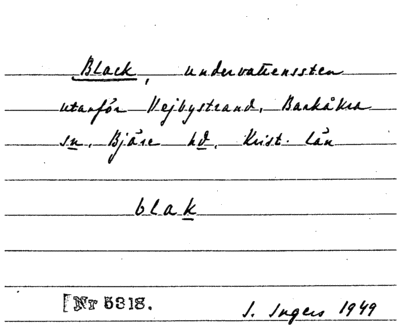 Black, undervattenssten
utanför Vejbystrand, Barkåkra
sn, Bjäre hd, Krist. län
blak
[Nr 5318.
I. Ingers 1949